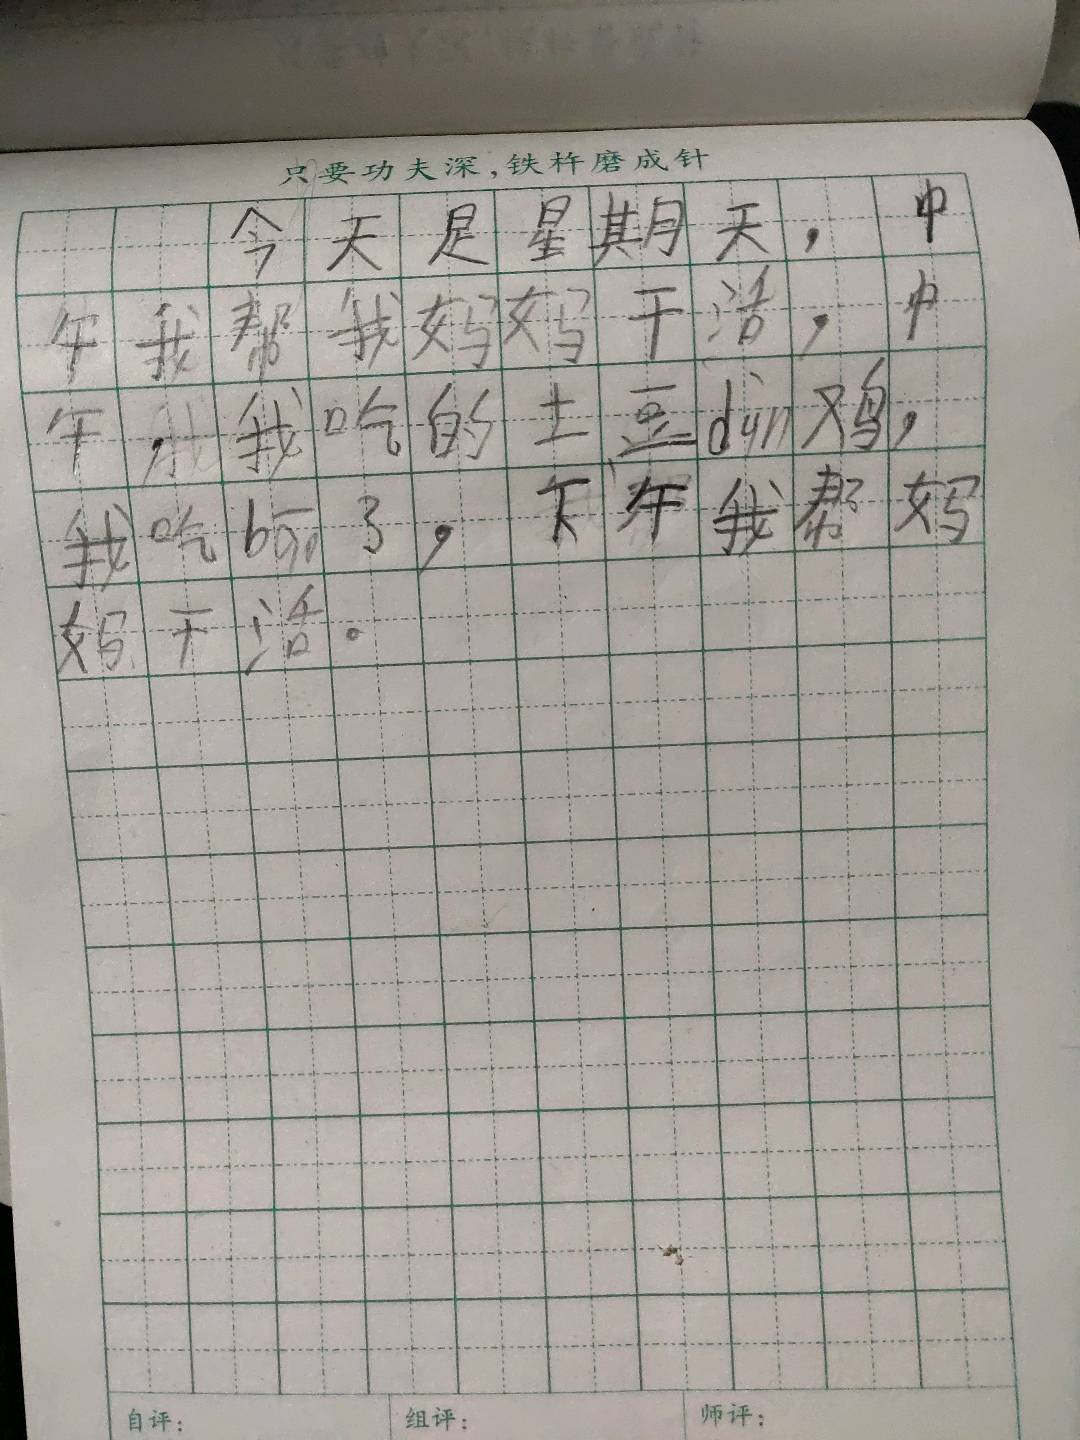 只要功夫深,铁杵磨成针
今天是星期天,中
午我帮我妈妈干活,中
午,我吃的土豆dùn鸡,
我吃bǎo了,下午我帮妈
妈干活。
自评: 组评: 师评: